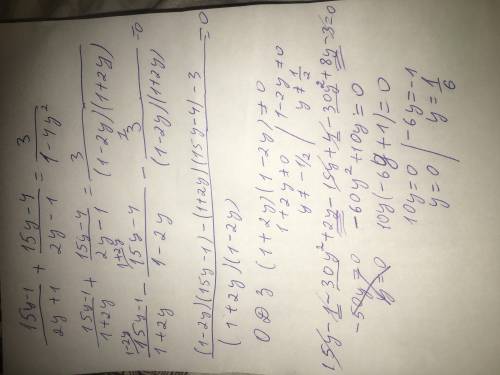 15y-1/2y+1 + 15y-4/2y-1 = 3/1-4y²
15y-1/1+2y + 15y-4/2y-1 = 3/(1-2y)(1+2y)
1-2y 15y-1/1+2y - 1+2y 15y-4/1-2y - 1 3/(1-2y)(1+2y) = 0
(1-2y)(15y-1)-(1+2y)(15y-4)-3/(1+2y)(1-2y) = 0
ОДЗ (1+2y)(1-2y)≠0
1+2y≠0 / 1-2y≠0
y≠-1/2 / y≠1/2
15y-1-30y²+2y-15y+4-30y²+8y-3=0
-50y=0 -60y²+10y=0
y=0 10y(-6y+1)=0
10y=0 / -6y=-1
y=0 / y=1/6